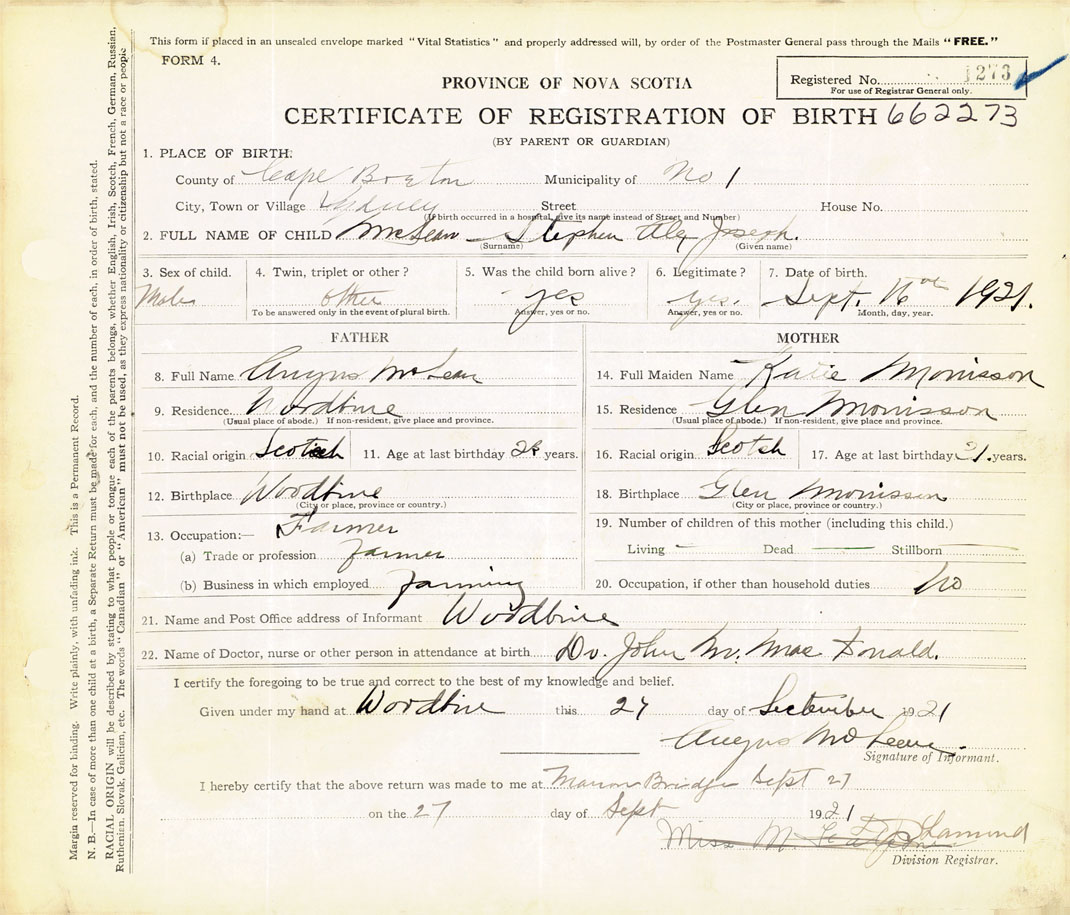 This form if placed in an unsealed envelope marked "Vital Statistics" and properly addressed will, by order of the Postmaster General pass through the Mails "FREE."
FORM 4.
Registered No. 1273
For use of Registrar General only.
PROVINCE OF NOVA SCOTIA
CERTIFICATE OF REGISTRATION OF BIRTH 662273
(BY PARENT OR GUARDIAN)
1. PLACE OF BIRTH:
County of Cape Breton Municipality of No 1
City, Town or Village Sydney Street House No.
(If birth occurred in a hospital, give its name instead of Street and Number)
2. FULL NAME OF CHILD McLean Stephen Alex Joseph.
(Surname) (Given name)
3. Sex of child. 4. Twin, triplet or other? 5. Was the child born alive? 6. Legitimate? 7. Date of birth.
Male other yes yes. Sept. 16th 1921.
To be answered only in the event of plural birth. Answer, yes or no. Answer, yes or no. Month, day, year.
FATHER MOTHER
8. Full Name Angus McLean 14. Full Maiden Name Katie Morrisson
9. Residence Woodbine 15. Residence Glen Morrisson
(Usual place of abode.) If non-resident, give place and province. (Usual place of abode.) If non-resident, give place and province.
10. Racial origin Scotch 11. Age at last birthday years. 16. Racial origin Scotch 17. Age at last birthday years.
12. Birthplace Woodbine 18. Birthplace Glen Morrisson
(City or place, province or country.) (City or place, province or country.)
13. Occupation:— Farmer 19. Number of children of this mother (including this child.)
(a) Trade or profession farmer Living Dead Stillborn
(b) Business in which employed farming 20. Occupation, if other than household duties no
21. Name and Post Office address of Informant Woodbine
22. Name of Doctor, nurse or other person in attendance at birth Dr. John M. Mac Donald.
I certify the foregoing to be true and correct to the best of my knowledge and belief.
Given under my hand at Woodbine this 27 day of September 1921
Angus McLean.
Signature of Informant.
I hereby certify that the above return was made to me at Marion Bridge Sept 27
on the 27 day of Sept 1921
Miss M.
Division Registrar.
Margin reserved for binding. Write plainly, with unfading ink. This is a Permanent Record.
N. B.—In case of more than one child at a birth, a Separate Return must be made for each, and the number of each, in order of birth, stated.
RACIAL ORIGIN will be described by stating to what people or tongue each of the parents belongs, whether English, Irish, Scotch, French, German, Russian,
Ruthenian, Slovak, Galician, etc. The words "Canadian" or "American" must not be used, as they express nationality or citizenship but not a race or people